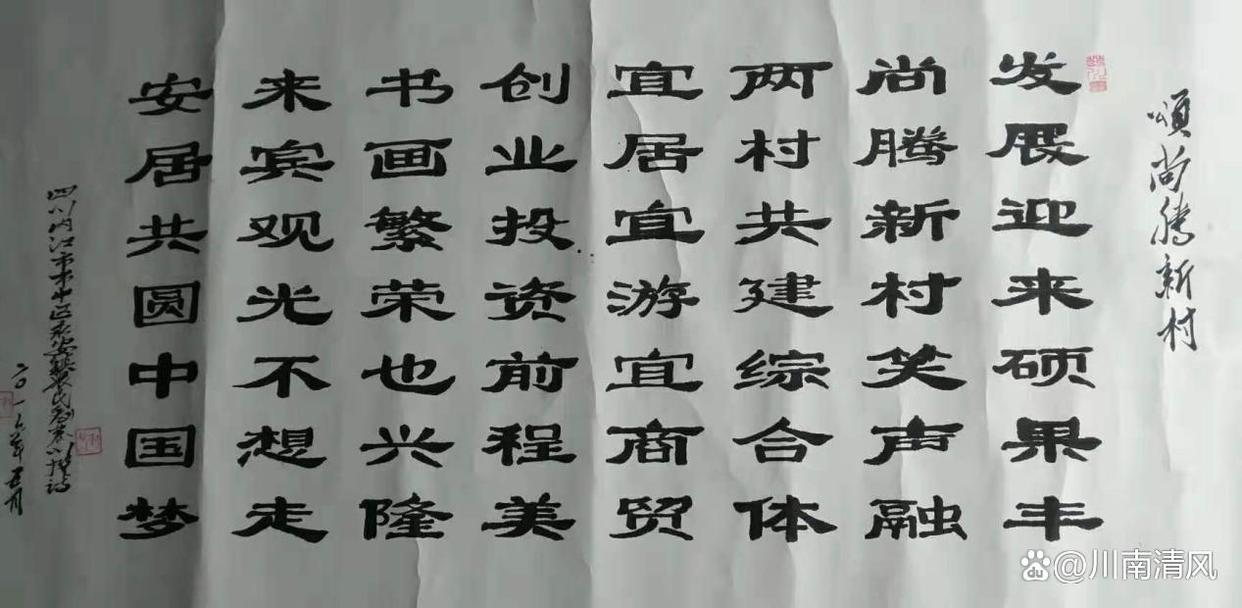 頌尚腾新村
发展迎来硕果丰
尚腾新村笑声融
两村共建综合体
宜居宜游宜商贸
创业投资前程美
书画繁荣也兴隆
来宾观光不想走
安居共圆中国梦
四川内江市市中区永安镇农民
二0一六年五月
@川南清风